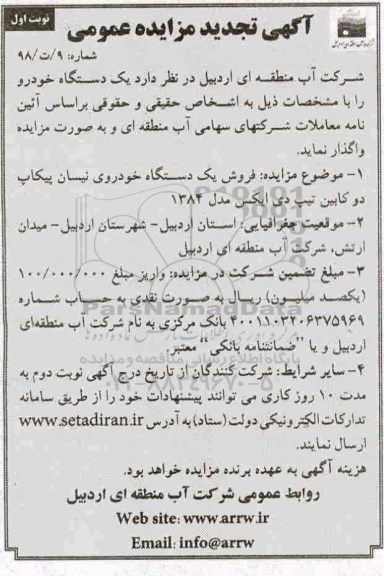 نوبت اول
آگهی تجدید مزایده عمومی
شماره: ۹/ت/۹۸
شرکت آب منطقه ای اردبیل در نظر دارد یک دستگاه خودرو
را با مشخصات ذیل به اشخاص حقیقی و حقوقی براساس آئین
نامه معاملات شرکتهای سهامی آب منطقه ای و به صورت مزایده
واگذار نماید.
۱- موضوع مزایده: فروش یک دستگاه خودروی نیسان پیکاپ
دو کابین تیپ دی ایکس مدل ۱۳۸۴
۲- موقعیت جغرافیایی: استان اردبیل- شهرستان اردبیل- میدان
ارتش، شرکت آب منطقه ای اردبیل
۳- مبلغ تضمین شرکت در مزایده: واریز مبلغ ۱۰۰/۰۰۰/۰۰۰
(یکصد میلیون) ریال به صورت نقدی به حساب شماره
۴۰۰۱۱۰۳۲۰۶۳۷۵۹۶۹ بانک مرکزی به نام شرکت آب منطقه‌ای
اردبیل و یا "ضمانتنامه بانکی" معتبر
۴- سایر شرایط: شرکت کنندگان از تاریخ درج آگهی نوبت دوم به
مدت ۱۰ روز کاری می توانند پیشنهادات خود را از طریق سامانه
تدارکات الکترونیکی دولت (ستاد) به آدرس www.setadiran.ir
ارسال نمایند.
هزینه آگهی به عهده برنده مزایده خواهد بود.
روابط عمومی شرکت آب منطقه ای اردبیل
Web site: www.arrw.ir
Email: info@arrw
ParsNamadData
پایگاه اطلاع رسانی مناقصه و مزایده